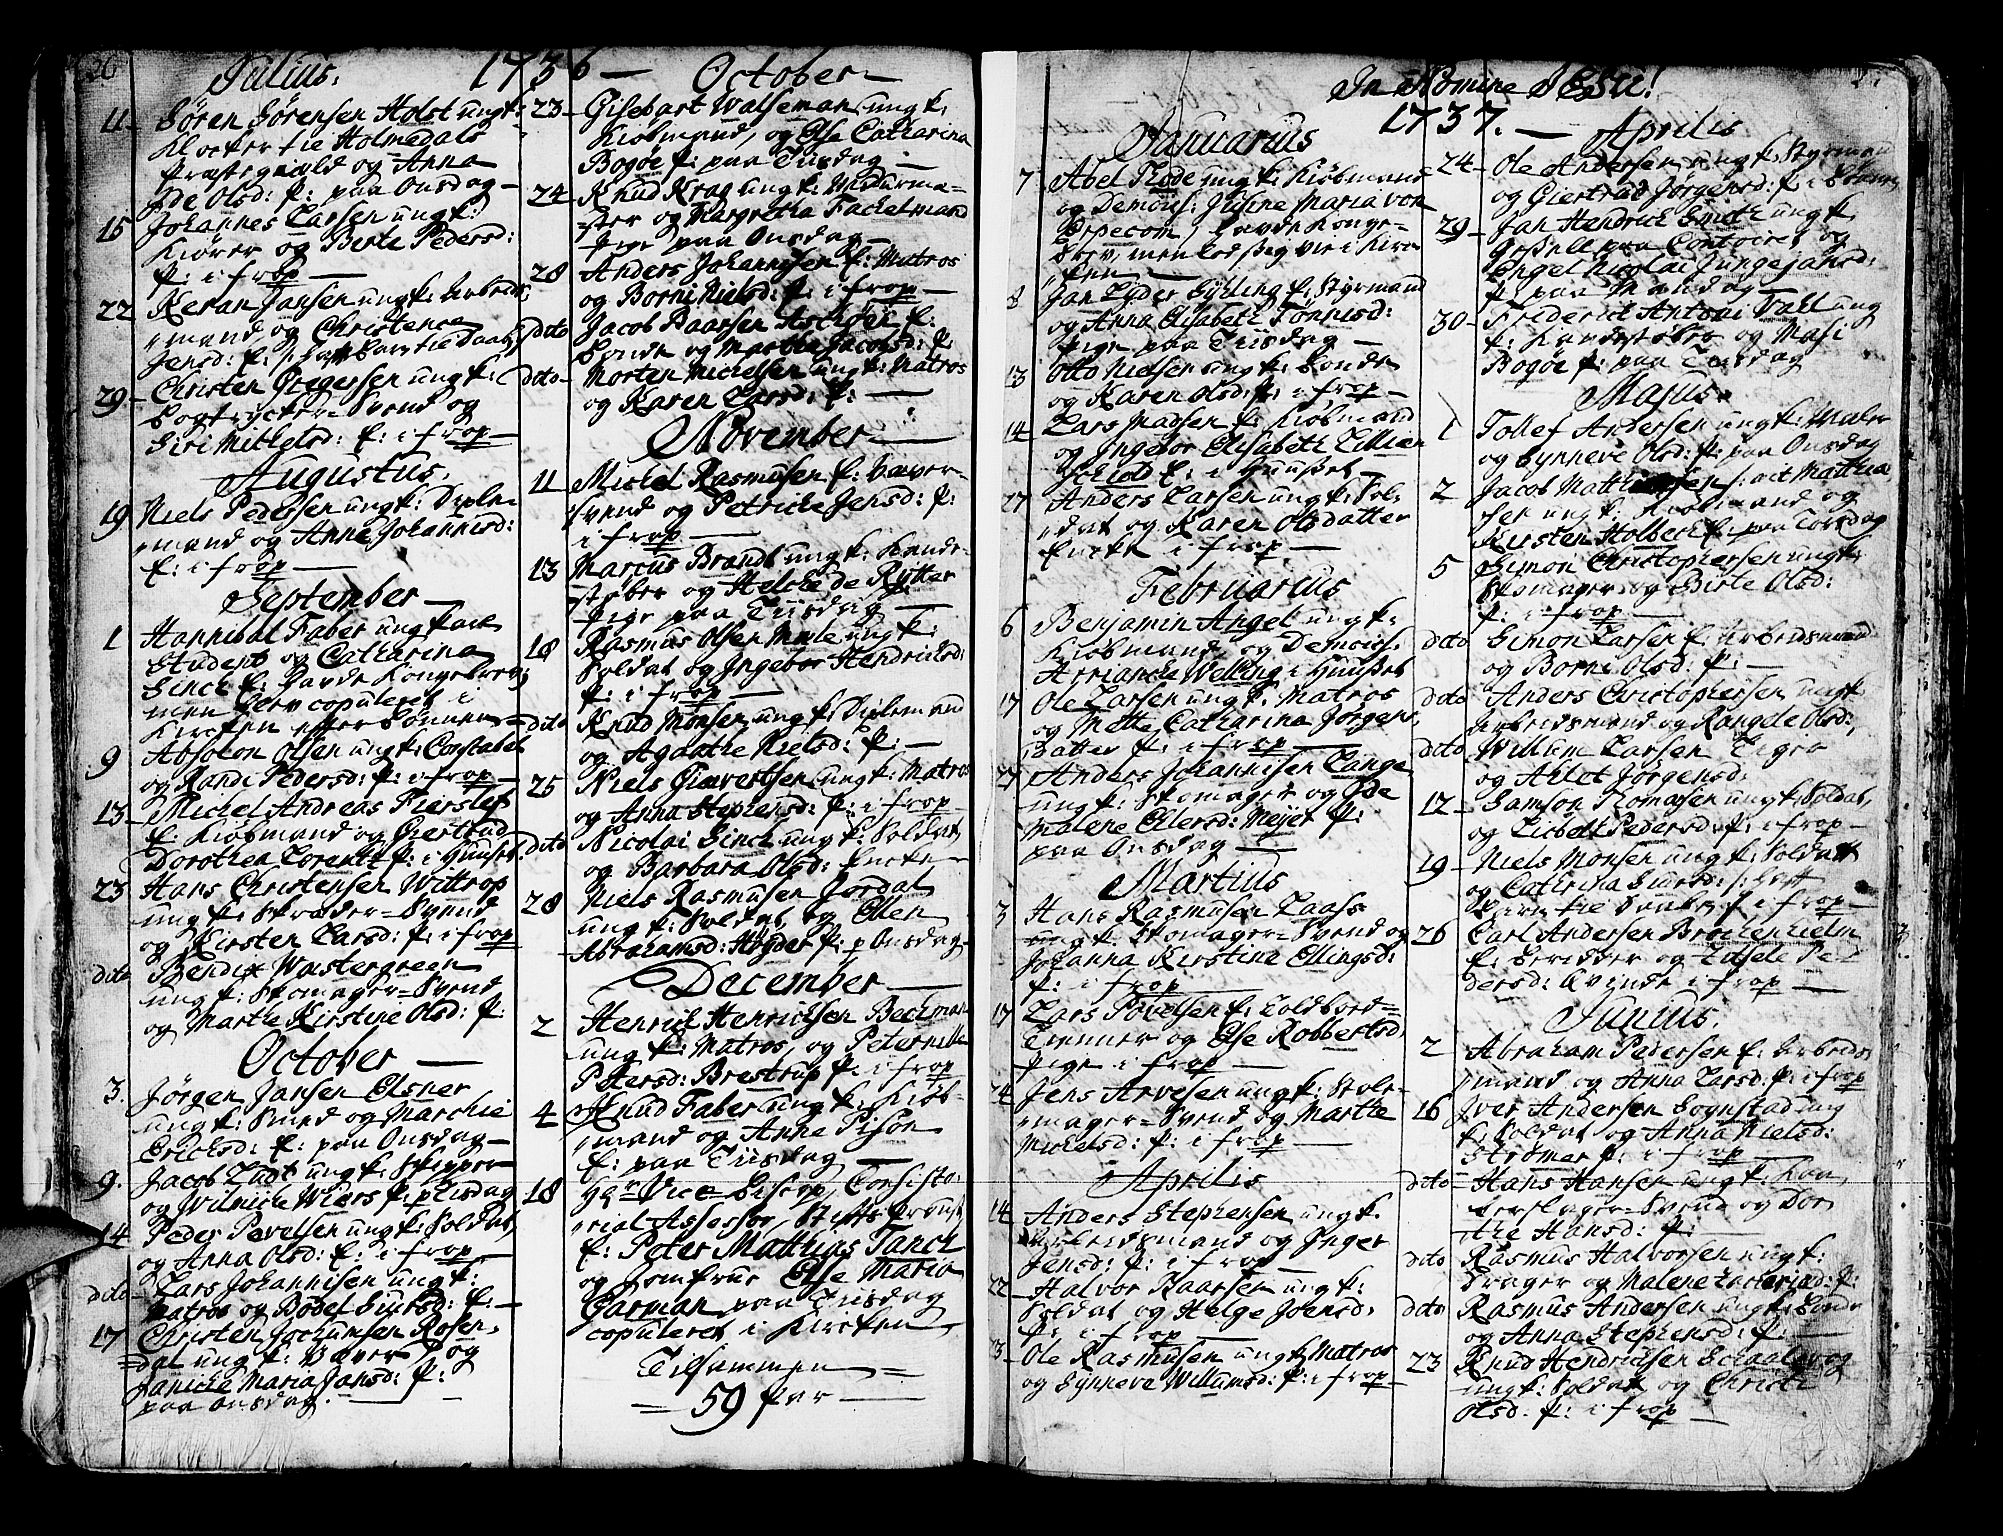 26
1736 —
Julius.
11 — Søren Sørensen Holst ung k:
Klocker tie Holmedals
Præstegield og Anna
Ide Olsd: P: paa Onsdag —
15 Johannes Larsen ung k:
og Berte Pedersd:
P: i frop —
22 Jansen ung k: Arbeids
mand, og Christence
Jensd: E:
29 — Christen Gregersen ung k:
Bogtrycker-Svend og
Siri Mickelsd: E: i frop —
Augustus.
19 Niels Pedersen ung k:
mand og Anne Johannisd:
E: i frop —
September —
1 Hannibal Faber ung karl
Student og Catharina
Sinch E: havde Kongebrev,
men blev copuleret i
Kircken efter Bønnen —
9 Absolon Olsen ung k: Constabel
og Randi Pedersd: P: i frop —
13 — Michel Andreas
E: Kiøbmand og Giertrud
Dorothea Lorentz P: i Huuset.
23 Hans Christensen Wittrop
ung k: Skræder-Svend
og Kirsten Larsd: P: i frop
dito Bendix Wæstergreen
ung k: Skomager-Svend
og Marthe Kirstine Olsd: P:
October —
3. Jørgen Jansen Elsner
ung k: Smed og Marchie
Ericksd: E: paa Onsdag —
9. Jacob Zadt ung k: Skipper
og Wilmicke Wiers P: p Tisdag
14 Peder Povelsen ung k: Soldat,
og Anna Olsd: E: i frop —
dito — Lars Johannisen ung k:
Matros og Bodel Siursd: E: —
17 Christen Jochumsen Rosen-
dal ung k: Væver, og
Janicke Maria Jansd: P:
paa Onsdag. —
October —
23 — Gisebart Walseman ung k:
Kiøbmand, og Else Catharina
Bogøe P: paa Tiisdag —
24 — Knud Krag ung k: Muurme-
ster og Margretha Fackelmand
Pige paa Onsdag —
28 Anders Johannisen E: Matros
og Borni Nielsd: P: i frop —
dito Jacob Baarsen Askiøel E:
Bonde og Martha Jacobsd: P:
dito — Morten Mickelsen ung k: Matros
og Karen Larsd: P: —
November —
11 — Michel Rasmusen E: Væver-
Svend og Petricke Jensd: P:
i frop —
13 Marcus Brandt ung k: Kande-
støber og Helche de Rytter
Pige paa Tiisdag —
18 Rasmus Olsen Mule ung k:
Soldat og Ingebor Hendricksd:
P: i frop —
dito — Knud Monsen ung k: Dielemand
og Agathe Nielsd: P: —
25 Niels Giævertsen ung k: Matros
og Anna Stephensd: P: i frop —
dito Nicolai Sinch ung k: Soldat,
og Barbara Olsd: Encke —
28 — Niels Rasmusen Jordal
ung k: Soldat og Ellen
Abrahamsd: Høyder P: p Onsdag —
December —
2 Henrich Henrichsen Beckman
ung k: Matros, og Peternille
Pettersd: Brestrup P: i frop
4 Knud Faber ung k: Kiøb-
mand og Anne Pison
E: paa Tiisdag —
18 Hr Vice-Bisrop, Consisto-
rial Assessor, Stifts Provst
E: Peter Matthias Tanch
og Jomfrue Else Maria
Garman paa Tiisdag
copuleret i Kircken —
Tilsammen —
= 59 Par —
In Nomine JEsu!
1737. —
Januarius
7 Abel Rode ung k: Kiøbmand
og Demois: Justine Maria von
Erpecom, havde Konge-
brev, men lod sig vie i Kir-
cken —
8 Jan Lyder E: Styrmand
og Anna Elisabeth Tønnisd:
Pige paa Tiisdag —
13 Otto Nielsen ung k: Bonde
og Karen Olsd: P: i frop —
14 Lars Madsen E: Kiøbmand
og Ingebor Elisabeth Lillien
schiold E: i Huuset —
27 Anders Larsen ung k: Sol-
dat og Karen Olsdatter
Encke i frop —
Februarius
6 Benjamin Angel ung k:
Kiøbmand, og Demois:
Arrianche Welling i Huuset
17 Ole Larsen ung k: Matros
og Mette Catharina Jørgens
datter P: i frop —
27 Anders Johannisen Lange
ung k: Skomager og Ide
Malene Ellersd: Meyer P:
paa Onsdag —
Martius
3 Hans Rasmusen Laass
ung k: Skomager-Svend og
Johanna Kirstina Ellingsd:
P: i frop —
17 Lars Povelsen E: Toldbord-
Tienner og Else Robbertsd:
Pige i frop —
24 Jens Arvesen ung k: Stole-
mager-Svend og Marthe
Mickelsd: P: i frop —
Aprilis
14 Anders Stephensen ung k:
Arbeidsmand og Inger
Jensd: P: i frop —
22 — Halvor Baarsen ung k:
Soldat og Helge Joensd:
P: i frop —
23 — Ole Rasmusen ung k: Matros
og Synneve Willumsd: P: i frop —
Aprilis
24 — Ole Andersen ung k: Styrmand
og Giertrud Jørgensd: P: i Bønnen
29 — Jan Hendrich Smith ung k:
Gesell paa Contoiret og
Engel Nicolai Jungejansd:
P: paa Mandag —
30 — Friderich Antoni Fall ung
k: Kandestøber og Masi
Bogøe P: paa Tiisdag
Majus.
1 Tollef Andersen ung k: Maler
og Synneve Olsd: P: paa Onsdag
2 Jacob Matthisen
ung k: Kiøbmand og
Kirsten Holbech E: paa Torsdag
5 Simon Christophersen ung k:
Skomager og Birte Olsd:
P: i frop —
dito Simon Larsen E: Arbeidsmand
og Borni Olsd: P: —
dito Anders Christophersen ung k:
Arbeidsmand og Rangele Olsd:
dito Willem Larsen
og Ahlot Jørgensd:
12 — Samson Thomasen ung k: Soldat,
og Lisbeth Pedersd: P: i frop —
19 — Niels Monsen ung k: Soldat
og Cathrina Siursd:
i frop —
26 Carl Andersen Brochenhielm
E: Bereider og Zidsele Pe-
dersd: Qvinde i frop —
Junius.
2 Abraham Pedersen E: Arbeids-
mand og Anna Larsd: P: i frop
16 Iver Andersen Sognstad ung
k: Soldat og Anna Nielsd:
Strømer P: i frop —
dito — Hans Hansen ung k: Kaa-
berslager-Svend og Dor-
the Hansd: P: —
dito Rasmus Halvorsen ung k:
Drager og Malene Zachariæd: P:
dito Rasmus Andersen ung k: Bonde
og Anna Stephensd: P: —
23 Knud Hendricksen
ung k: Soldat og Christi
Olsd: P: i frop —